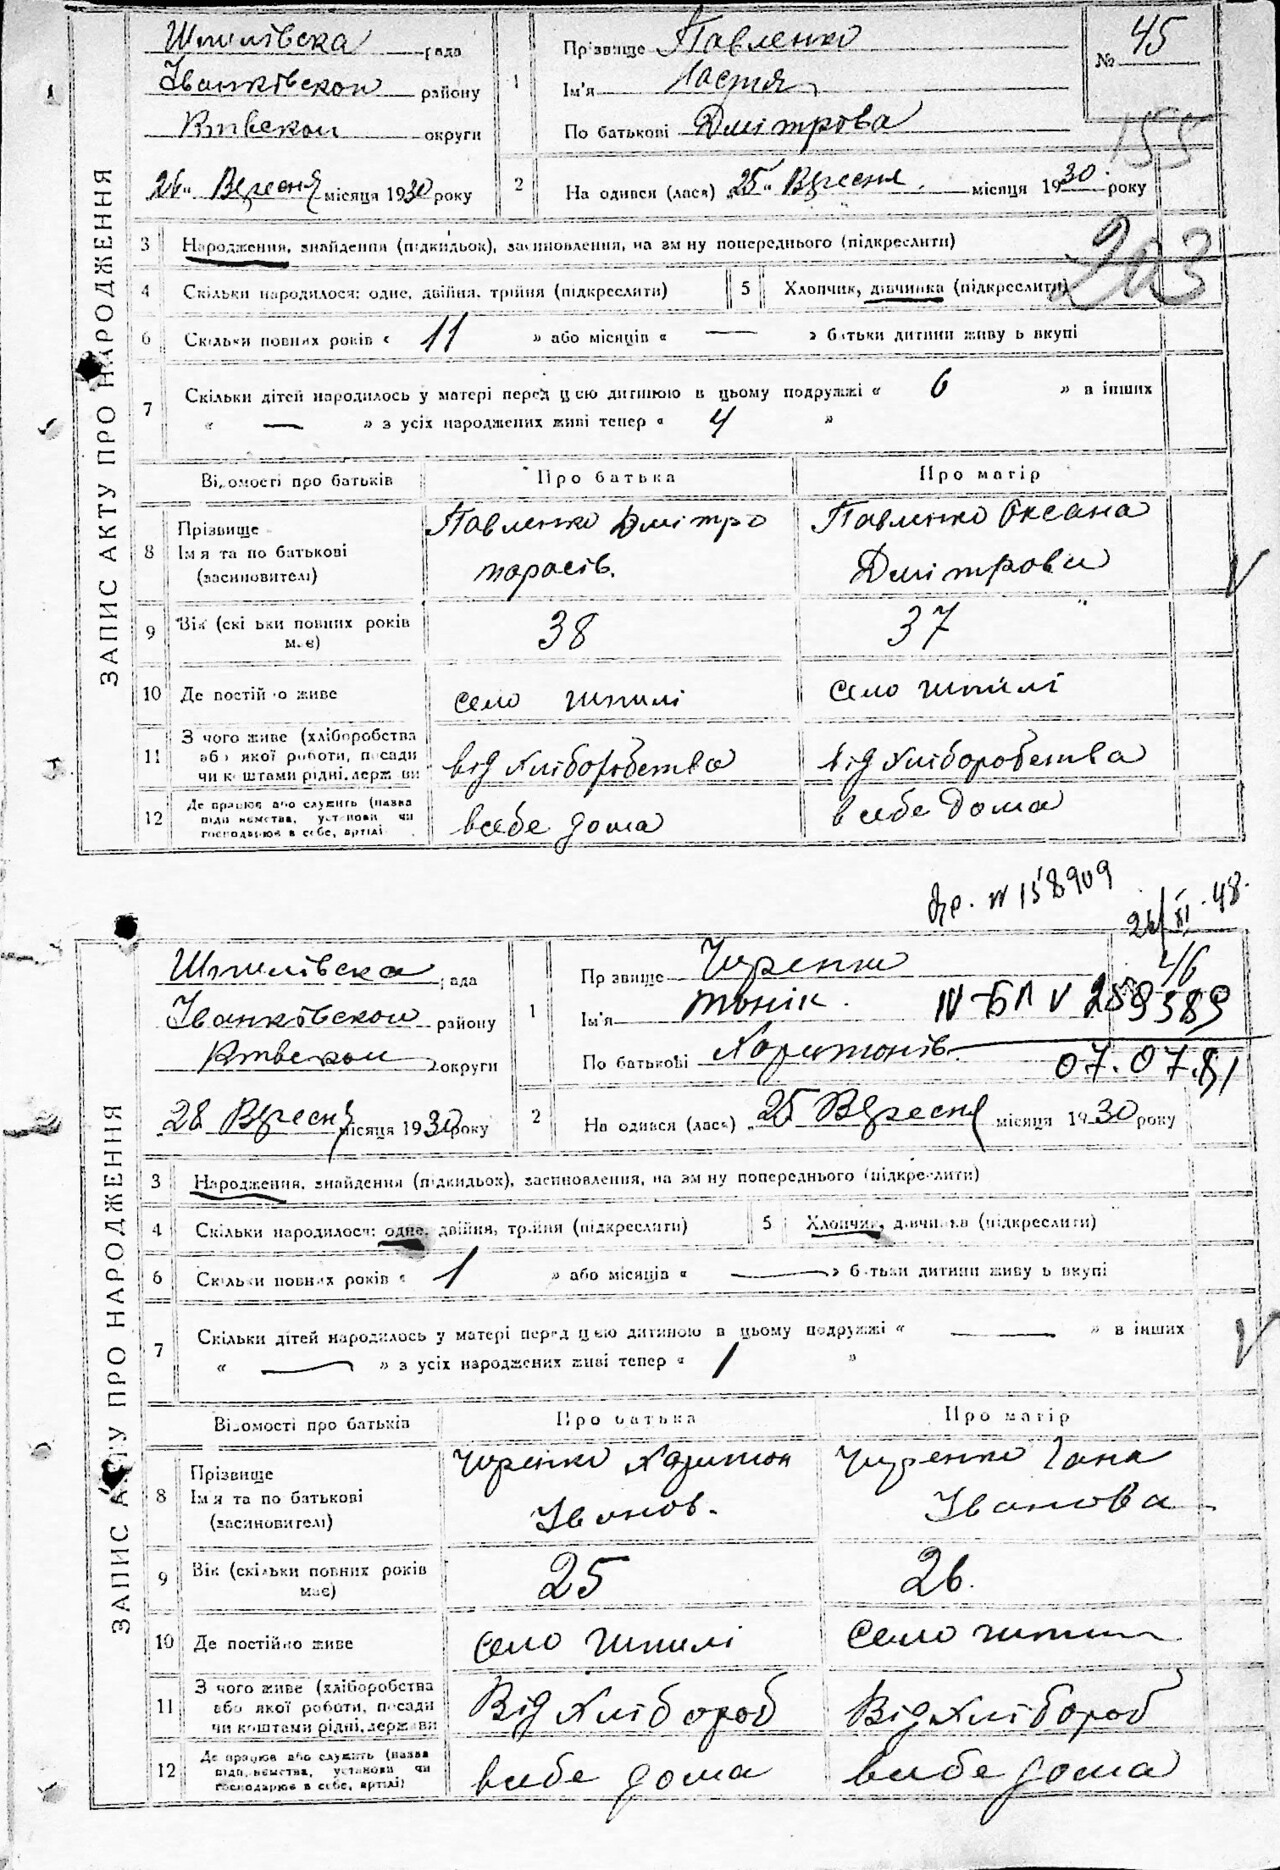 ЗАПИС АКТУ ПРО НАРОДЖЕННЯ
Шпилівска рада
Іванківскои району
Київскои округи
26" Вересня місяця 1930 року
1 Прізвище Павленко
Ім'я Настя
По батькові Дмітрова
№ 45
155
2 На одився (лася) „25" Вересня місяця 1930 року
203
3 Народження, знайдення (підкидьок), засиновлення, на зм ну попереднього (підкреслити)
4 Скільки народилося: одне, двійня, трійня (підкреслити) 5 Хлопчик, дівчинка (підкреслити)
6 Скільки повних років « 11 » або місяців « — » батьки дитини живу ь вкупі
7 Скільки дітей народилось у матері перед цією дитиною в цьому подружжі « 6 » в інших
« — » з усіх народжених живі тепер « 4 »
Відомості про батьків Про батька Про матір
8 Прізвище Ім'я та по батькові (засиновителі) Павленко Дмітро Павленко Оксана
Дмітрова
9 Вік (скі ьки повних років має) 38 37
10 Де постійно живе село шпилі село шпилі
11 З чого живе (хліборобства або якої роботи, посади чи коштами рідні, держави від хліборобства від хліборобства
12 Де працює або служить (назва підприємства, установи чи господарює в себе, артілі) всебе дома всебе дома
№ 158909
24/XI.48.
ЗАПИС АКТУ ПРО НАРОДЖЕННЯ
Шпилівска рада
Іванківскои району
Київскои округи
28 Вересня місяця 1930 року
1 Пр звище Чиренко
Ім'я
По батькові Харитонів.
46
IV-БЛ V 259389
07.07.81
2 На одився (лася) „25 Вересня місяця 1930 року
3 Народження, знайдення (підкидьок), засиновлення, на зм ну попереднього (підкреслити)
4 Скільки народилося: одне, двійня, трійня (підкреслити) 5 Хлопчик, дівчинка (підкреслити)
6 Скільки повних років « 1 » або місяців « — » батьки дитини живу ь вкупі
7 Скільки дітей народилось у матері перед цією дитиною в цьому подружжі « — » в інших
« — » з усіх народжених живі тепер « 1 »
Відомості про батьків Про батька Про матір
8 Прізвище Ім'я та по батькові (засиновителі) Чиренко Харитон Чиренко Гана
Іванов. Іванова
9 Вік (скільки повних років має) 25 26.
10 Де постійно живе село шпилі село шпили
11 З чого живе (хліборобства або якої роботи, посади чи коштами рідні, держави Від хлібороб Від хлібороб
12 Де працює або служить (назва підприємства, установи чи господарює в себе, артілі) всебе дома всебе дома